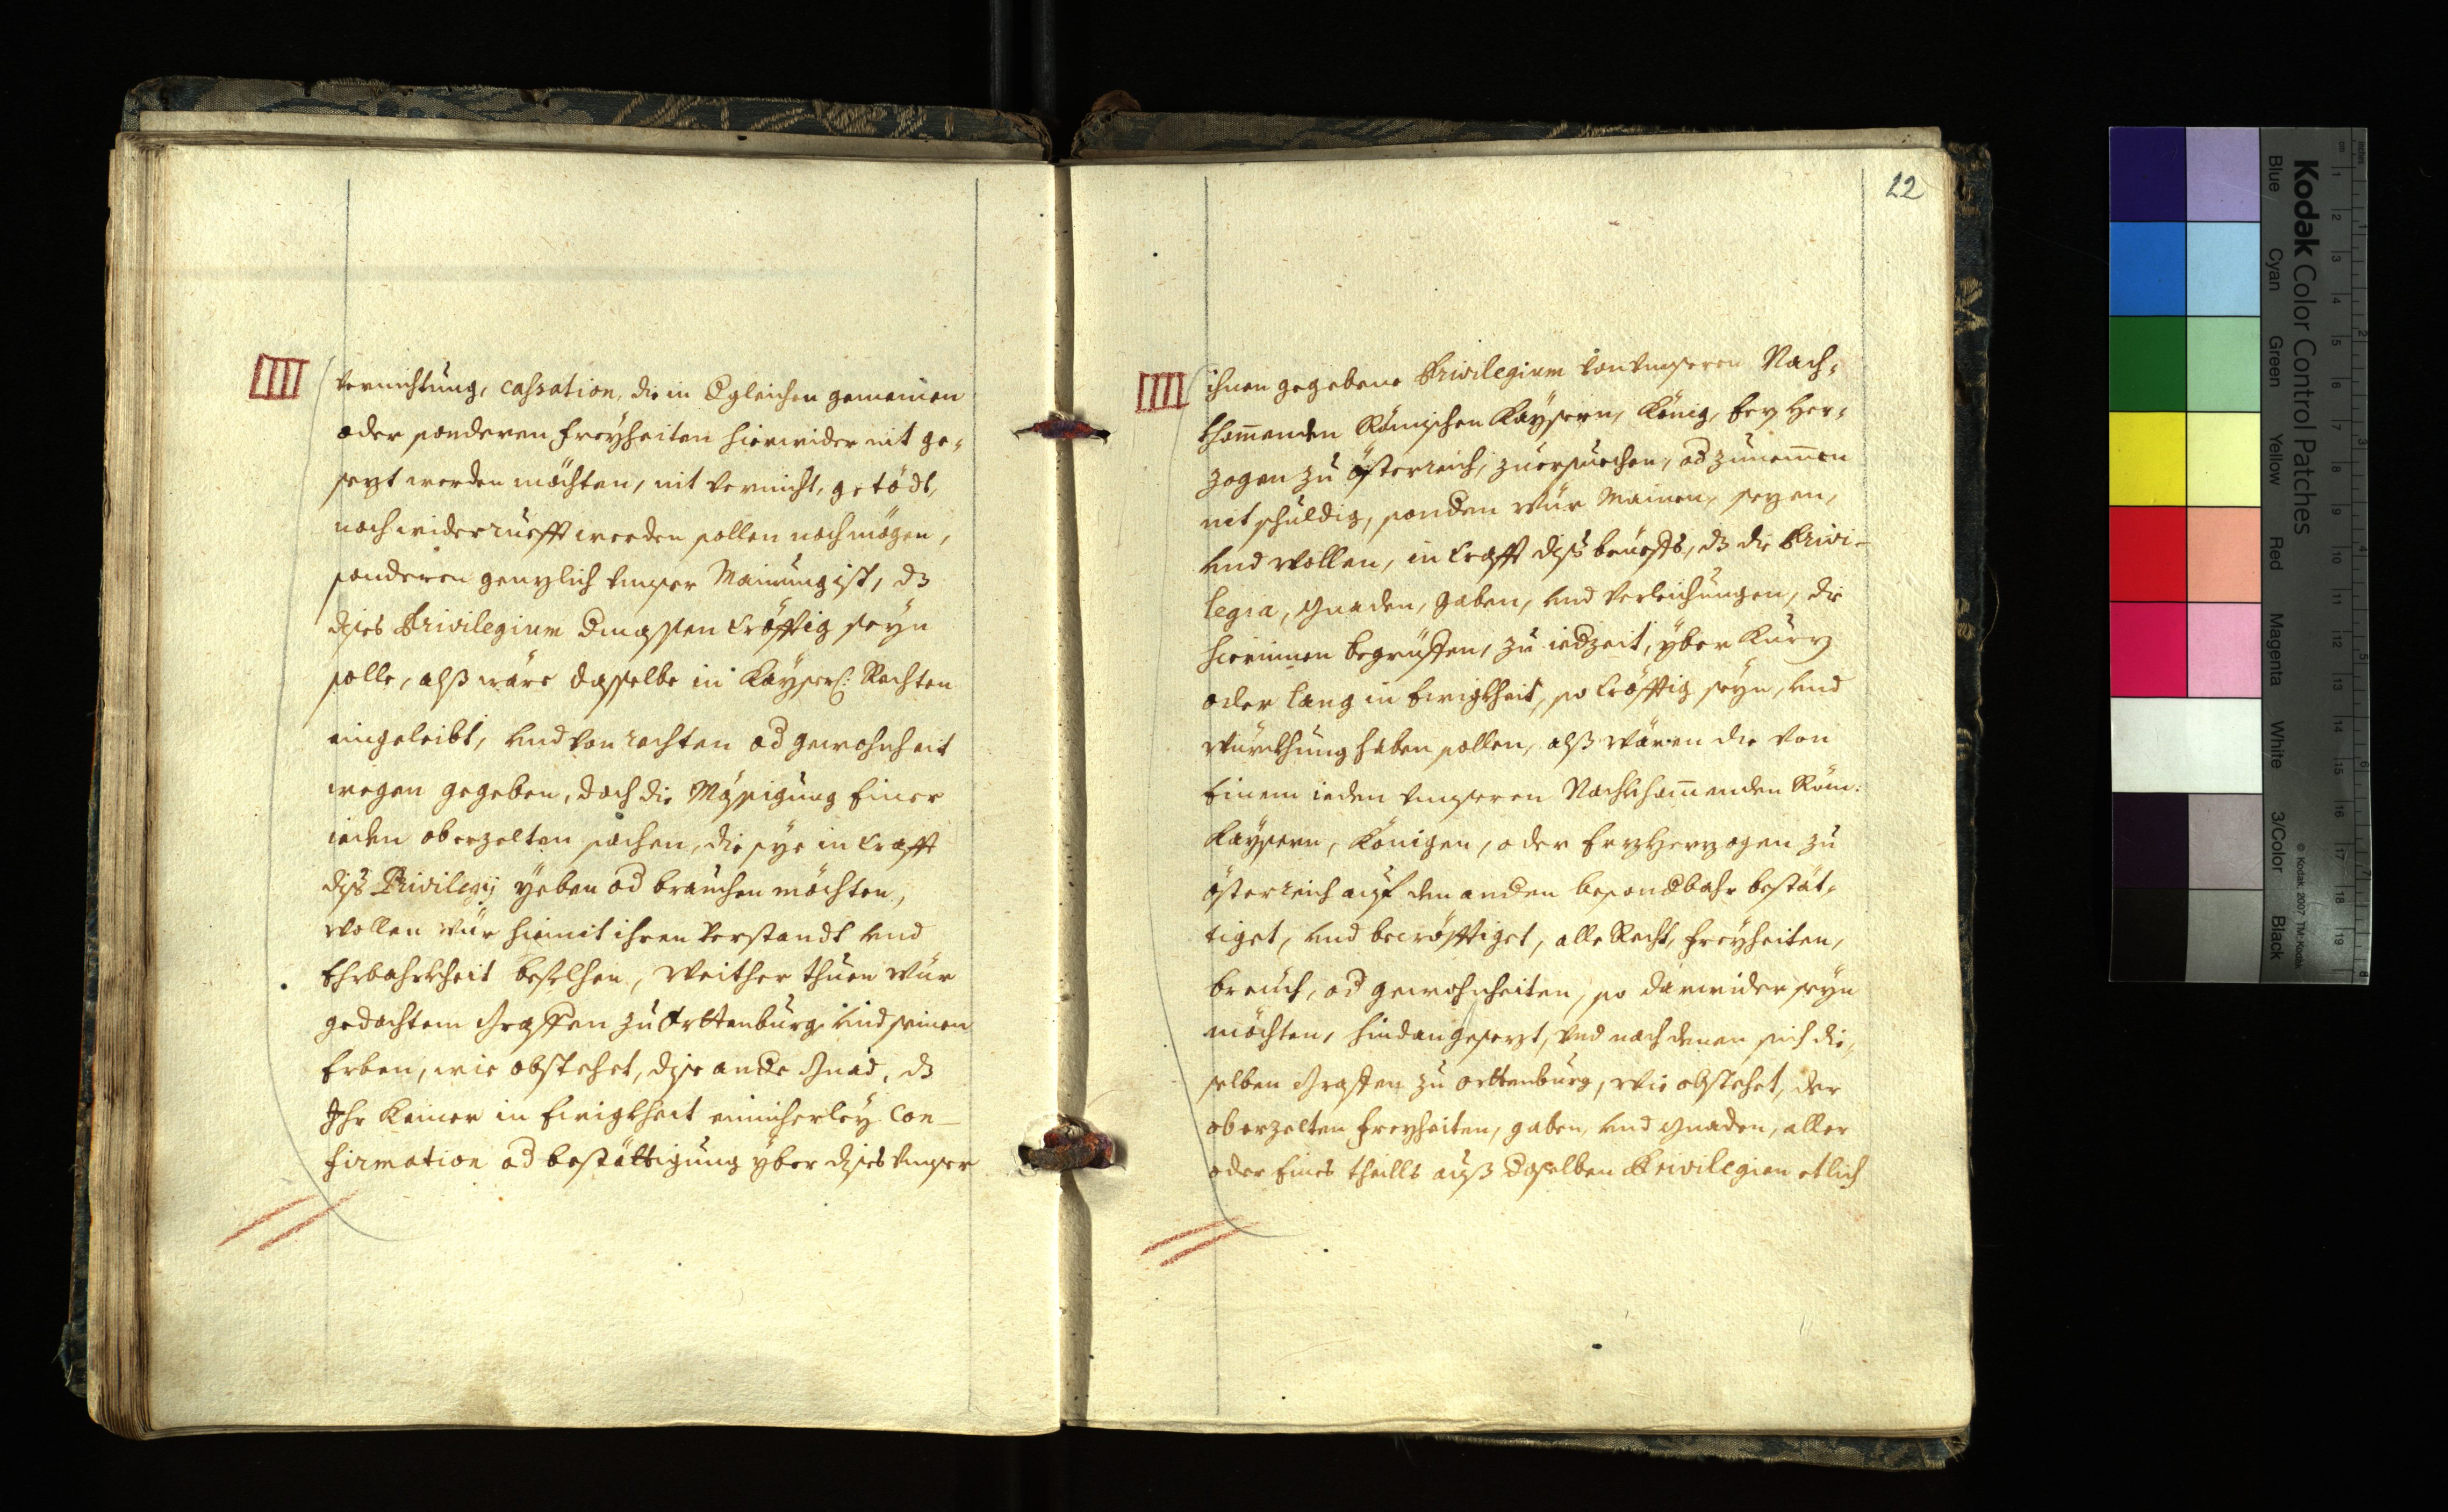 IIII
vernichtung, cassation, die in dgleichen gemainen
oder sonderen freÿheiten hierwider nit ge,
sezt werden möchten, nit vernicht, getödt,
noch widerruefft werden sollen noch mögen,
sonderen genzlich vnser Mainung ist, dz
dises Privilegium dmassen cröfftig seÿn
solle, alß wäre dasselbe in Kaÿserl: Rechten
eingeleibt, vnd von rechten od gewohnheit
wegen gegeben, doch die Mässigung Einer
ieden oberzelten sachen, die sÿe in crafft
diß Privilegij ÿeben od brauchen möchten,
wollen wür hiemit ihren Verstandt vnd
Ehrbahrkheit befelhen, Weither thuen wür
gedachtem Graffen zu Orttenburg, vnd seinen
Erben, wie obstehet, dise ande Gnad, dz
Ihr Keiner in Ewigkheit einicherleÿ Con-
firmation od bestättigung ÿber dises vnser
22
IIII
ihnen gegebene Privilegium von vnseren Nach,
khom̄enden Römischen Kaÿsern, König, Erz Her,
zogen zu Österreich, zuersuechen, od zunem̄en
nit schuldig, sonden wür Mainen, sezen,
vnd wollen, in Crafft diß brieffs, dz die Privi-
legia, Gnaden, gaben, vnd Verleichungen, die
hierinnen begriffen, zu iedzeit, ÿber Kurz
oder lang in Ewigkheit, so cröfftig seÿn, vnd
würckhung haben sollen, alß wären die von
Einem ieden vnseren Nachkhom̄enden Röm:
Kaÿsern, Königen, oder Erzherzogen zu
österreich auf den anden besondbahr bestät,
tiget, vnd becröfftiget, alle Recht, freÿheiten,
breuch, od gewohnheiten, so darwider seÿn
möchten, hindangesezt, vnd nach denen sich die,
selben Graffen zu orttenburg, wie obstehet, der
oberzelten freyheiten, gaben, vnd Gnaden, aller
oder Eines theills auß dselben Privilegien etlich
Kodak Color Control Patches
Blue Cyan Green Yellow Red Magenta White 3/Color Black
© Kodak, 2007 TM: Kodak